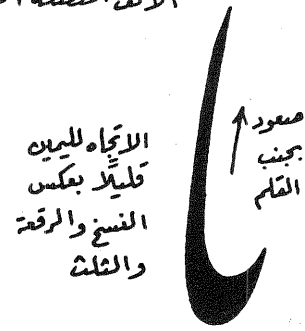 صعود
بجنب
القلم
الاتجاه لليمين
قليلاً بعكس
النسخ والرقعة
والثلث